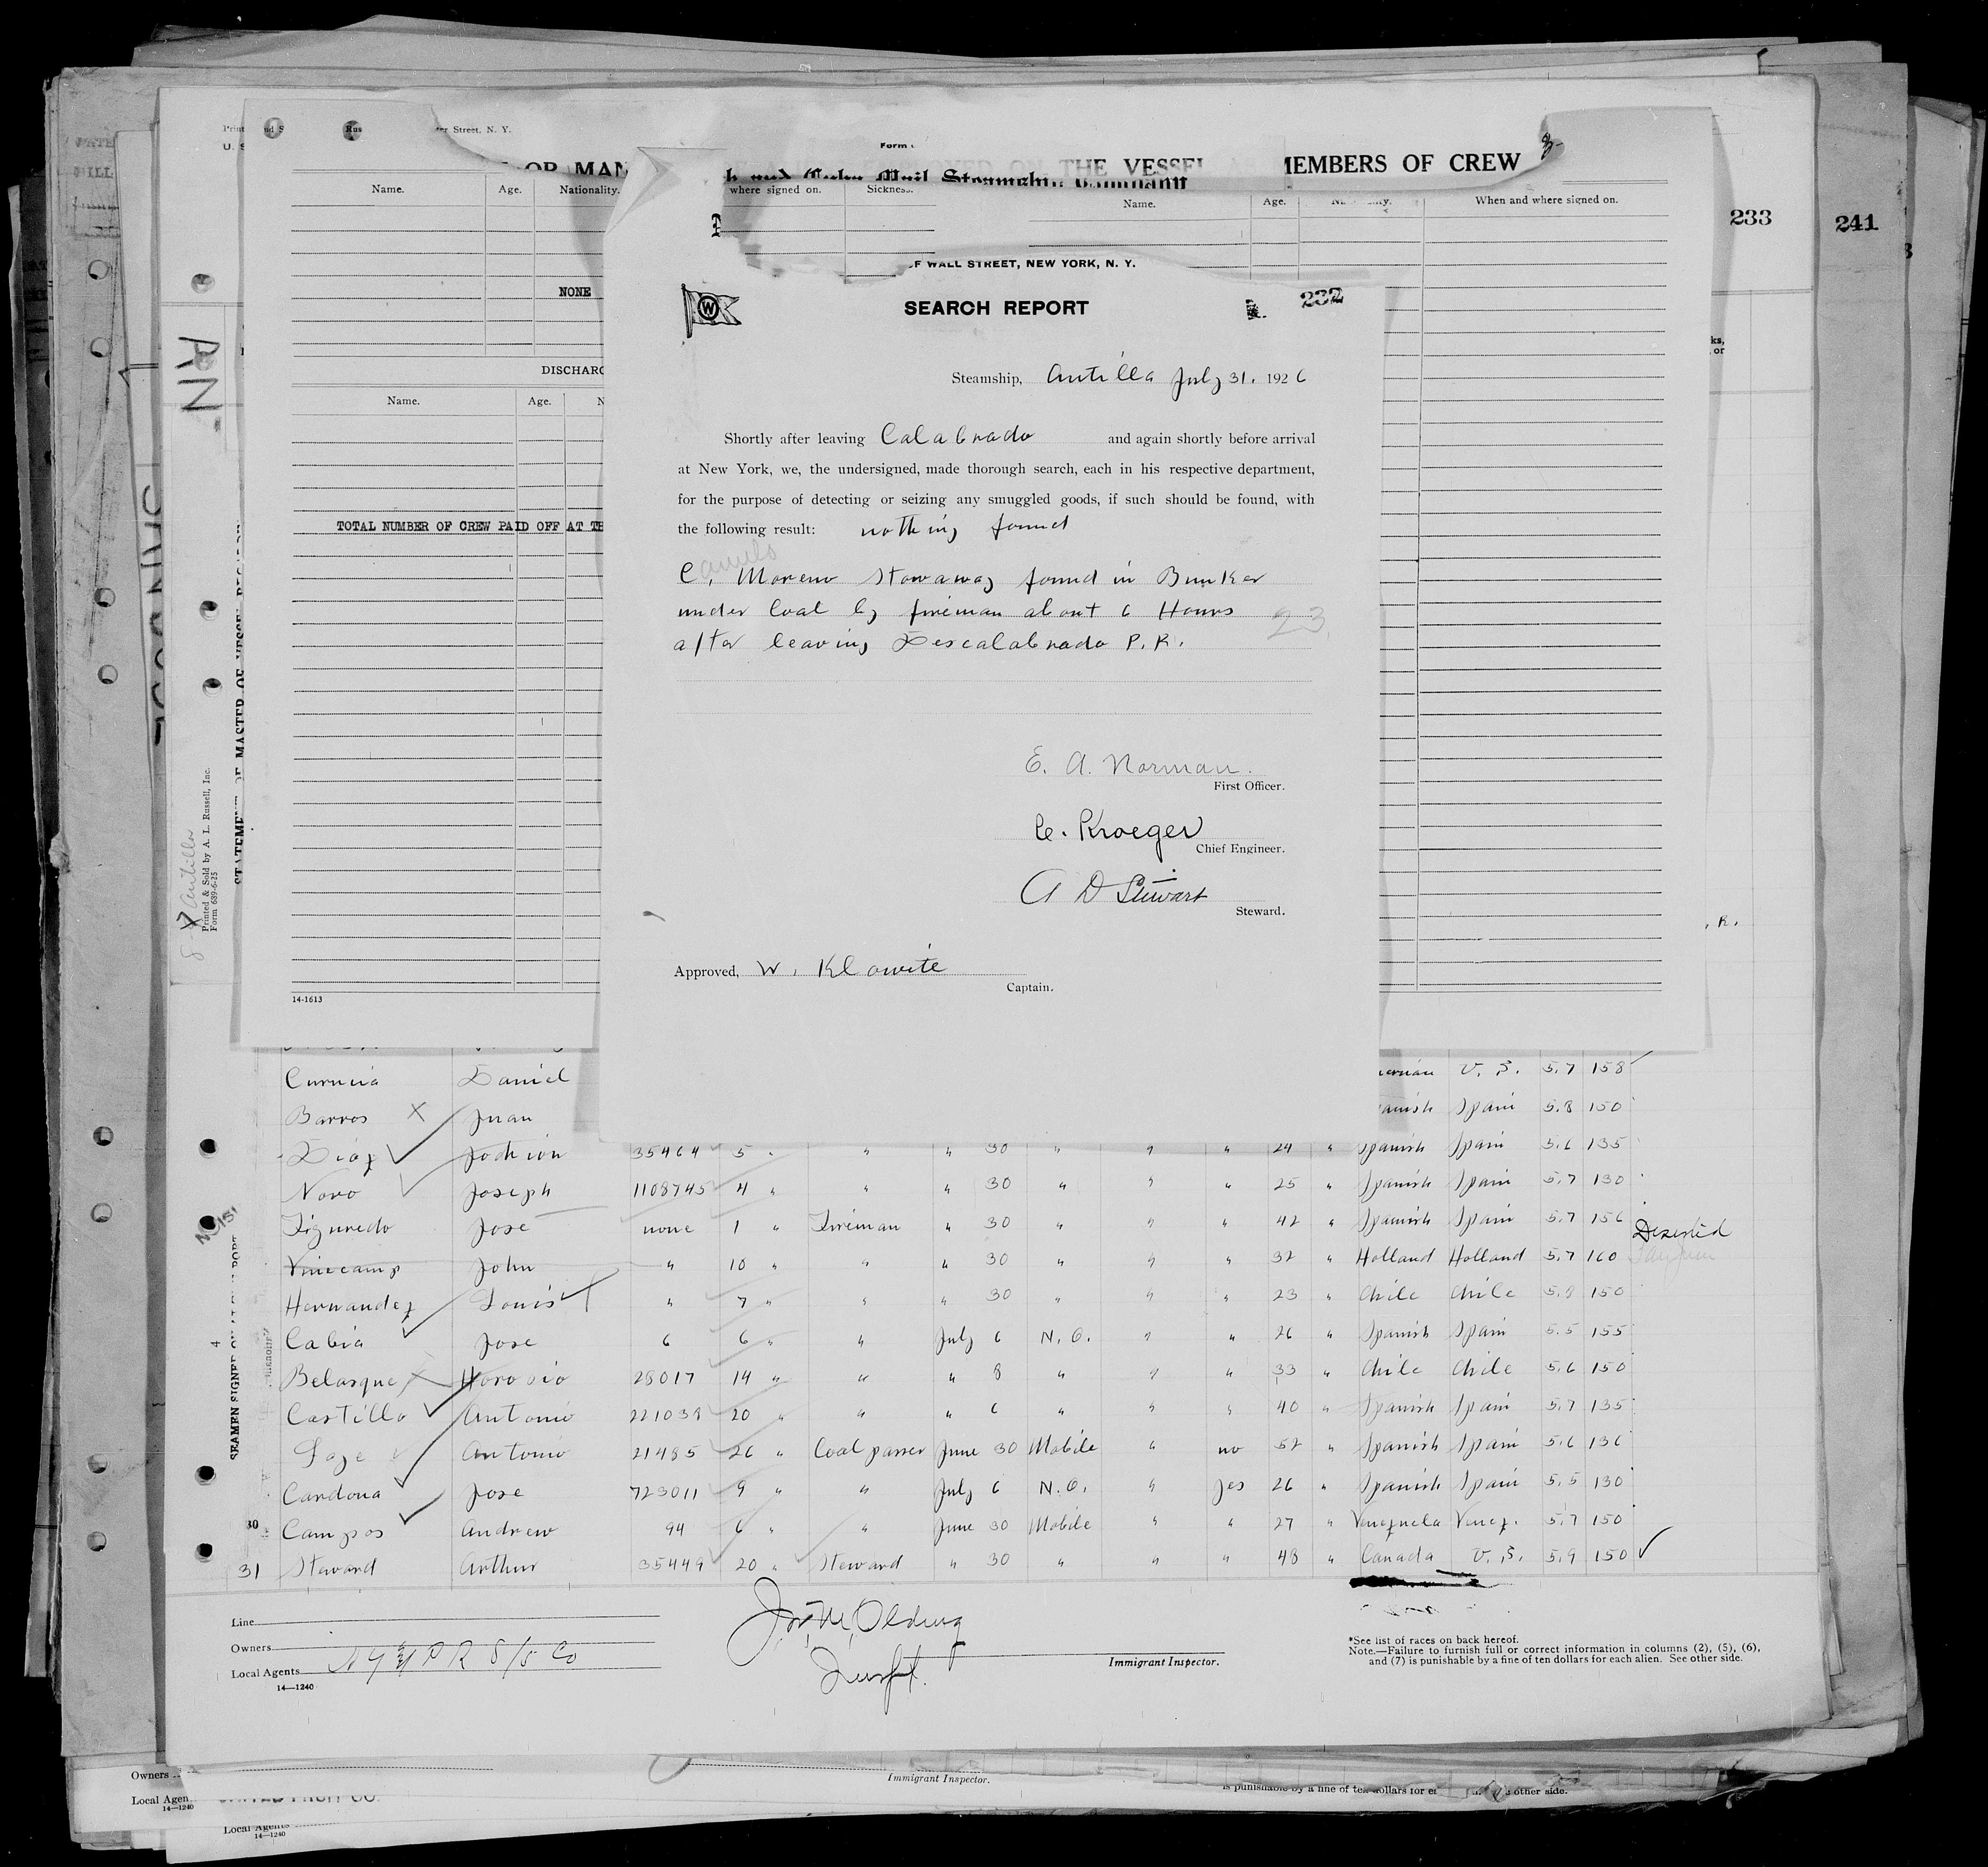 er Street, N. Y.
U. S
Form
OR MAN
THE VESSEL
MEMBERS OF CREW
Name. Age. Nationality. where signed on. Name. Age. When and where signed on.
233
241
and Cuba Mail Steamship Company
WALL STREET, NEW YORK, N. Y.
NONE
W
SEARCH REPORT
232
Steamship, Antilla July 31. 1926
Shortly after leaving Calabrado and again shortly before arrival
at New York, we, the undersigned, made thorough search, each in his respective department,
for the purpose of detecting or seizing any smuggled goods, if such should be found, with
the following result: nothing found
Camilo
C. Moreno stowaway found in Bunker
under Coal by fireman about 6 Hours
23
after leaving Descalabrado P.R.
E. A. Norman.
First Officer.
C. Kroeger
Chief Engineer.
A D Stewart
Steward.
Approved, W. Klowite
Captain.
DISCHARG
Name. Age. N
TOTAL NUMBER OF CREW PAID OFF AT TH
14-1613
ks,
or
, R.
Antilla
Printed & Sold by A. L. Russell, Inc.
Form 689-6-25
Daniel U. S. 5.7 158
Barros X Juan anish Spain 5.8 150
Diaz 35464 5 " " " 30 " " " 24 " Spanish Spain 5.6 135
Novo Joseph 1108745 4 " " " 30 " " " 25 " Spanish Spain 5.7 130
Figuredo Jose none 1 " Fireman " 30 " " " 42 " Spanish Spain 5.7 156
Deserted
Vinecamp John " 10 " " " 30 " " " 32 " Holland Holland 5.7 160
Hernandez Louis " 7 " " " 30 " " " 23 " Chile Chile 5.8 150
Cabia Jose 6 6 " " July 6 N.O. " " 26 " Spanish Spain 5.5 155
Belasque X 28017 14 " " " 8 " " " 33 " Chile Chile 5.6 150
Castillo Antonio 221038 20 " " " 6 " " " 40 " Spanish Spain 5.7 135
Antonio 21485 26 " Coal passer June 30 Mobile " no 52 " Spanish Spain 5.6 136
Cardona Jose 723011 9 " " July 6 N.O. " yes 26 " Spanish Spain 5.5 130
30 Campos Andrew 94 6 " " June 30 Mobile " " 27 " Venezuela Venez. 5.7 150
31 Steward Arthur 35449 20 " Steward " 30 " " " 48 " Canada U.S. 5.9 150
Line
Owners
Local Agents N Y & P R S/S Co
14—1240
Immigrant Inspector.
*See list of races on back hereof.
Note.—Failure to furnish full or correct information in columns (2), (5), (6),
and (7) is punishable by a fine of ten dollars for each alien. See other side.
Owners
Immigrant Inspector.
Local Agen
14—1240
is punishable by a fine of ten dollars for other side.
Local Agents
14—1240